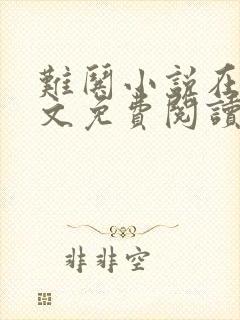 難鬨小說在
文免費閱讀
非非空